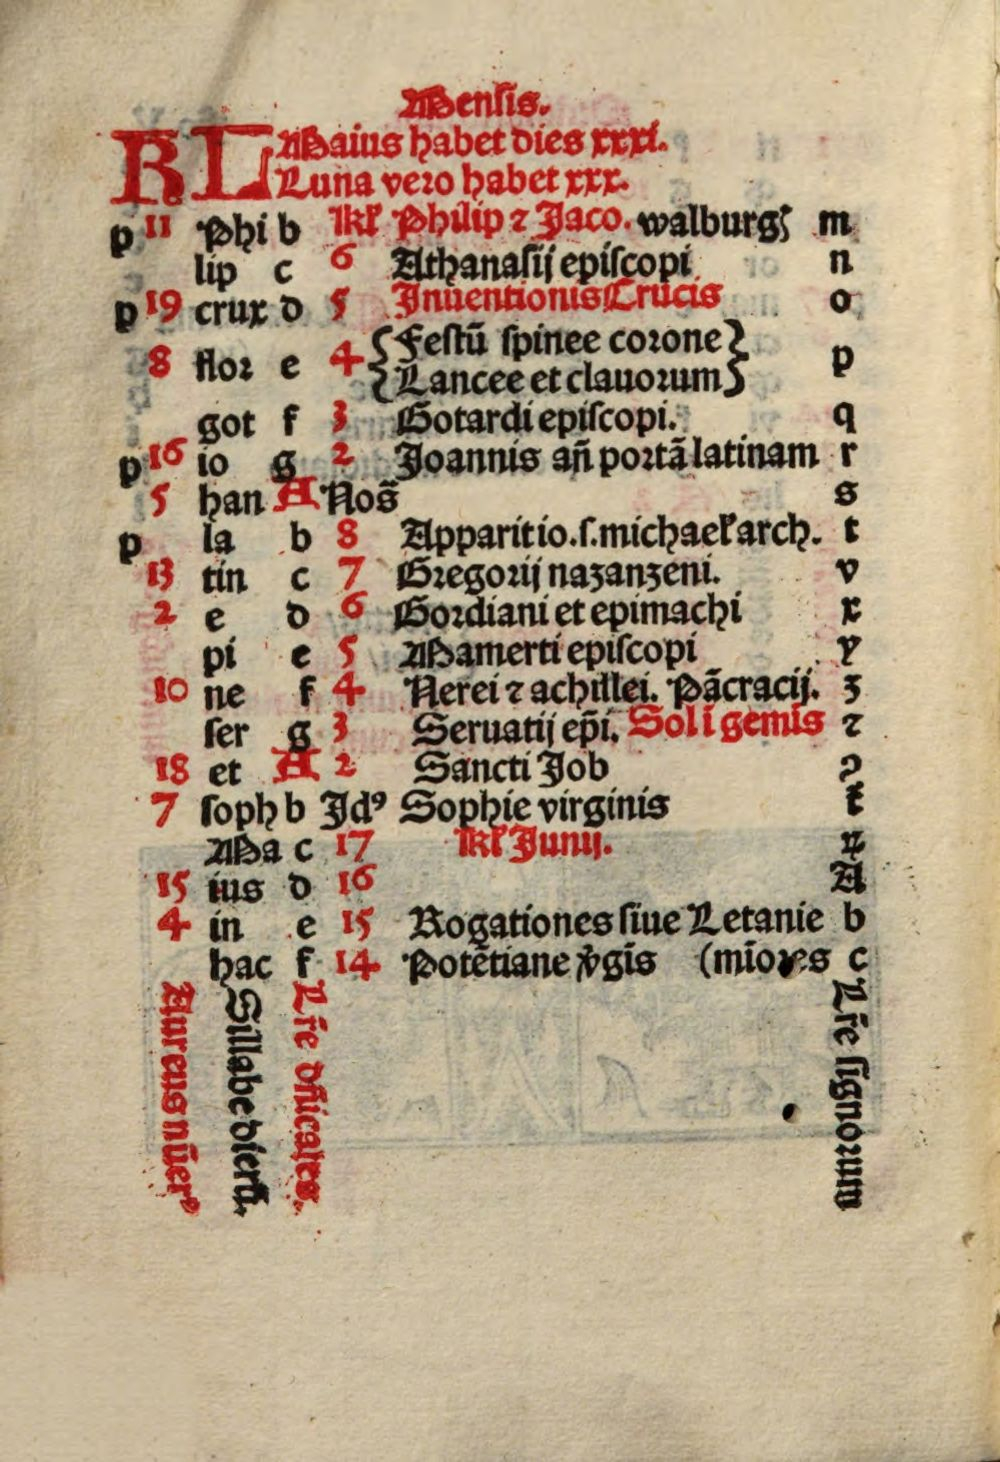 Mensis.
KL Maius habet dies xxxi.
Luna vero habet xxx.
p 11 Phi b kl̄ Philip ⁊ Jaco. walburgꝭ m
lip c 6 Athanasij episcopi n
p 19 crux d 5 Inuentionis Crucis o
8 flor e 4 {Festū spinee corone} p
{Lancee et clauorum}
got f 3 Gotardi episcopi. q
p 16 io g 2 Joannis añ portā latinam r
5 han A Nos̄ s
p la b 8 Apparitio.s.michael̄ arch. t
13 tin c 7 Gregorij nazanzeni. v
2 e d 6 Gordiani et epimachi x
pi e 5 Mamerti episcopi y
10 ne f 4 Nerei ⁊ achillei. Pācracij. z
ser g 3 Seruatij ep̄i. Sol ī gemīs ⁊
18 et A 2 Sancti Job ꝯ
7 soph b Jdꝰ Sophie virginis
Ma c 17 kl̄ Junij.
15 ius d 16 A
4 in e 15 Rogationes siue Letanie b
hac f 14 Potētiane v̄gīs (mīores c
Aureus nūerꝰ
Sillabe
Lr̄e
Lr̄e signorum